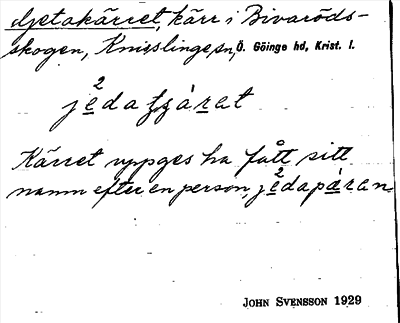 Getakärret, kärr i Bivaröds-
skogen, Knislinge sn, Ö. Göinge hd, Krist. l.
2
Kärret uppges ha fått sitt
namn efter en person, 
JOHN SVENSSON 1929